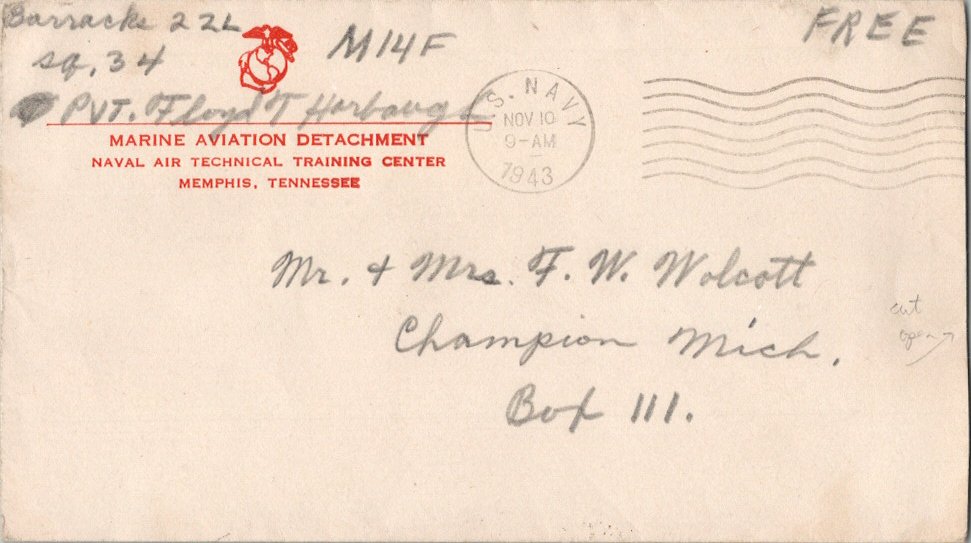 Barracks 22L
M14F
FREE
Sq. 34
PVT. Floyd T Harbaugh
MARINE AVIATION DETACHMENT
NAVAL AIR TECHNICAL TRAINING CENTER
MEMPHIS, TENNESSEE
U.S. NAVY
NOV 10
9-AM
1943
Mr. & Mrs. F. W. Wolcott
Champion Mich.
Box 111.
cut
open